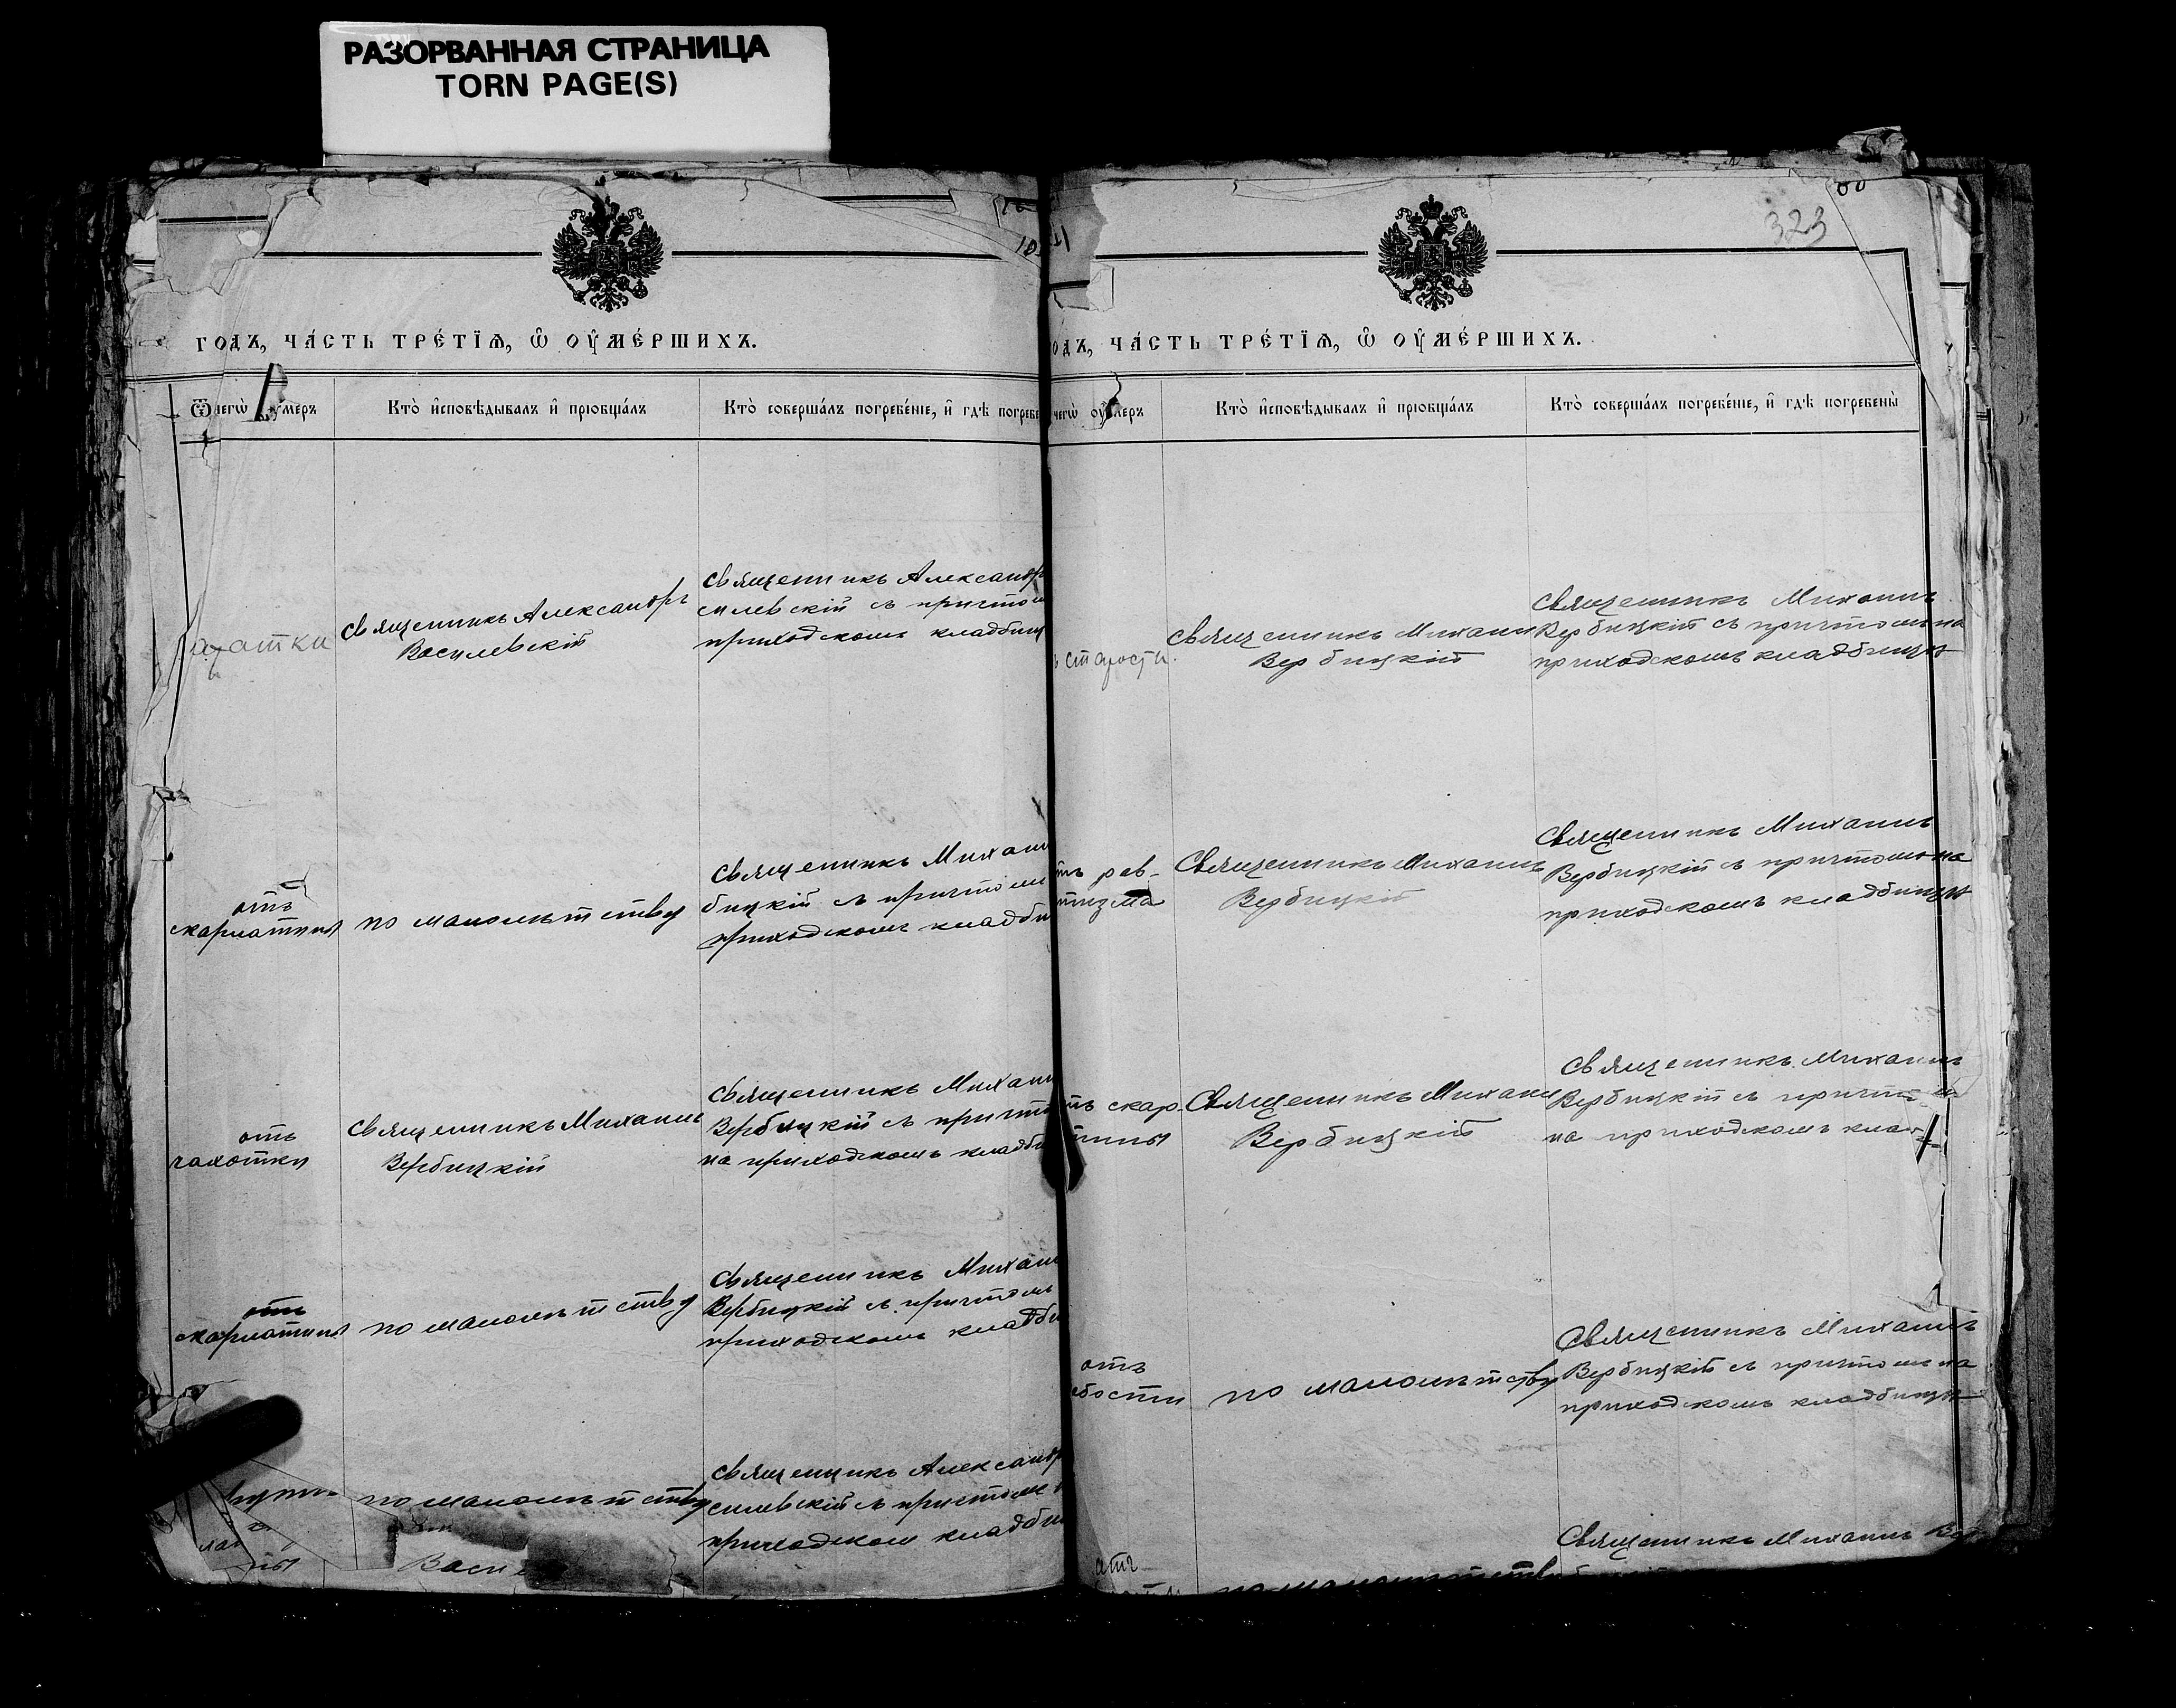 РАЗОРВАННАЯ СТРАНИЦА
TORN PAGE(S)
323
годъ, часть третїѧ, ѡ оумершихъ.
Ѿчегѡ оумеръ
Кто исповѣдывалъ и прїобщалъ
Кто совершалъ погребенїе, и гдѣ погребе
Священникъ Александръ
Василевскій
Священникъ Александръ
силевскій съ причтом
приходскомъ кладбищ
отъ
скарлатины
по малолѣтству
Священникъ Михаил
бицкій съ причтом
приходскомъ кладби
отъ
чахотки
Священникъ Михаилъ
Вербицкій
Священникъ Михаил
Вербицкій съ причт
на приходскомъ кладби
отъ
скарлатины
по малолѣтству
Священникъ Михаил
Вербицкій съ причтомъ
приходскомъ кладби
по малолѣтству
Васи
Священникъ Александр
силевскій съ причтом
приходском кладби
одъ, часть третїѧ, ѡ оумершихъ.
чегѡ оумеръ
Кто исповѣдывалъ и прїобщалъ
Кто совершалъ погребенїе, и гдѣ погребены
старости.
Священникъ Михаил
Вербицкій
Священникъ Михаилъ
Вербицкій съ причтом на
приходскомъ кладбищѣ
тъ рев-
тизма
Священникъ Михаилъ
Вербицкій
Священникъ Михаилъ
Вербицкій съ причтом на
приходскомъ кладбищѣ
тъ скар-
тины
Священникъ Михаил
Вербицкій
Священникъ Михаилъ
Вербицкій съ причт
на приходскомъ клад
отъ
бости
по малолѣтству
Священникъ Михаилъ
Вербицкій съ причтом на
приходскомъ кладбищѣ
отъ
по малолѣтству
Священникъ Михаилъ Вер